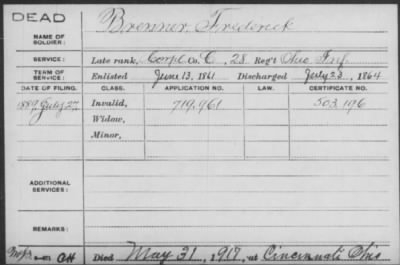 DEAD
NAME OF SOLDIER: Brenner, Frederick
SERVICE: Late rank, Corpl Co. C, 28 Reg't Ohio Inf.
TERM OF SERVICE: Enlisted June 13, 1861 Discharged July 23, 1864
DATE OF FILING. CLASS. APPLICATION NO. LAW. CERTIFICATE NO.
1889, July 27. Invalid, 719,961 503,196
Widow,
Minor,
ADDITIONAL SERVICES:
REMARKS:
Died May 31, 1917, at Cincinnati Ohio